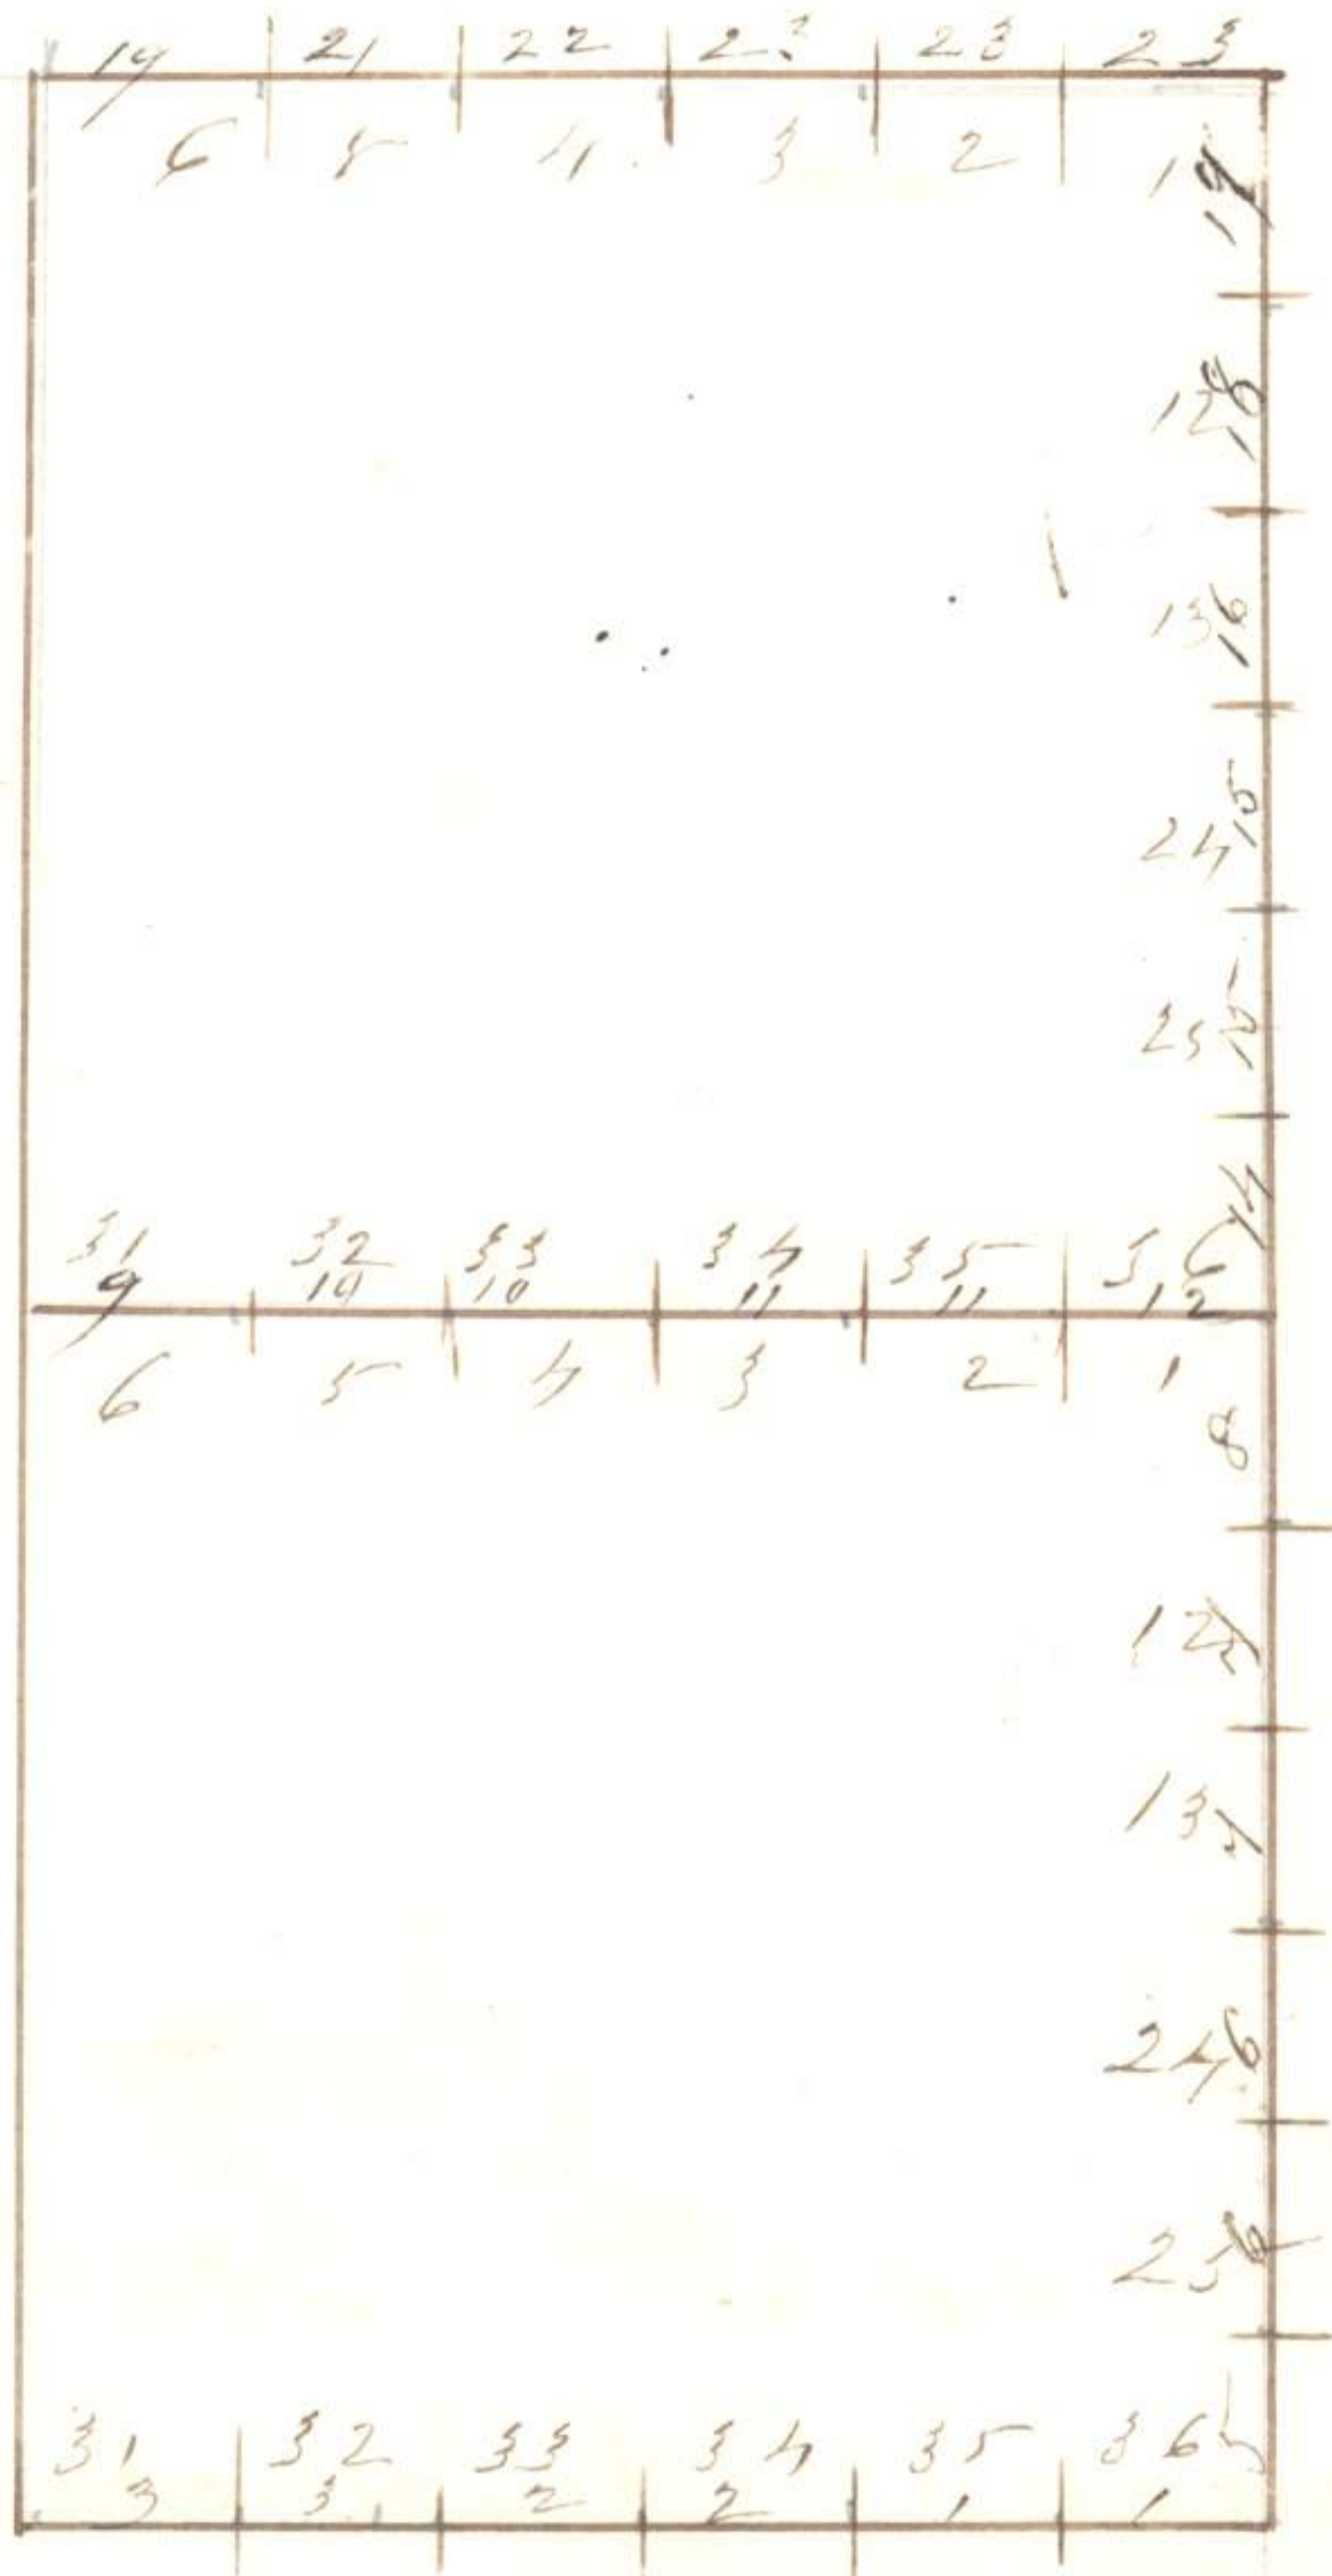 19 21 22 23 23 23
6 5 4 3 2 1
19
12 18
13 16
24 15
25
14
31 32 33 34 35 36
9 10 10 11 11 12
6 5 4 3 2 1
8
12 7
13 7
24 6
25 6
31 32 33 34 35 36 5
3 3 2 2 1 1